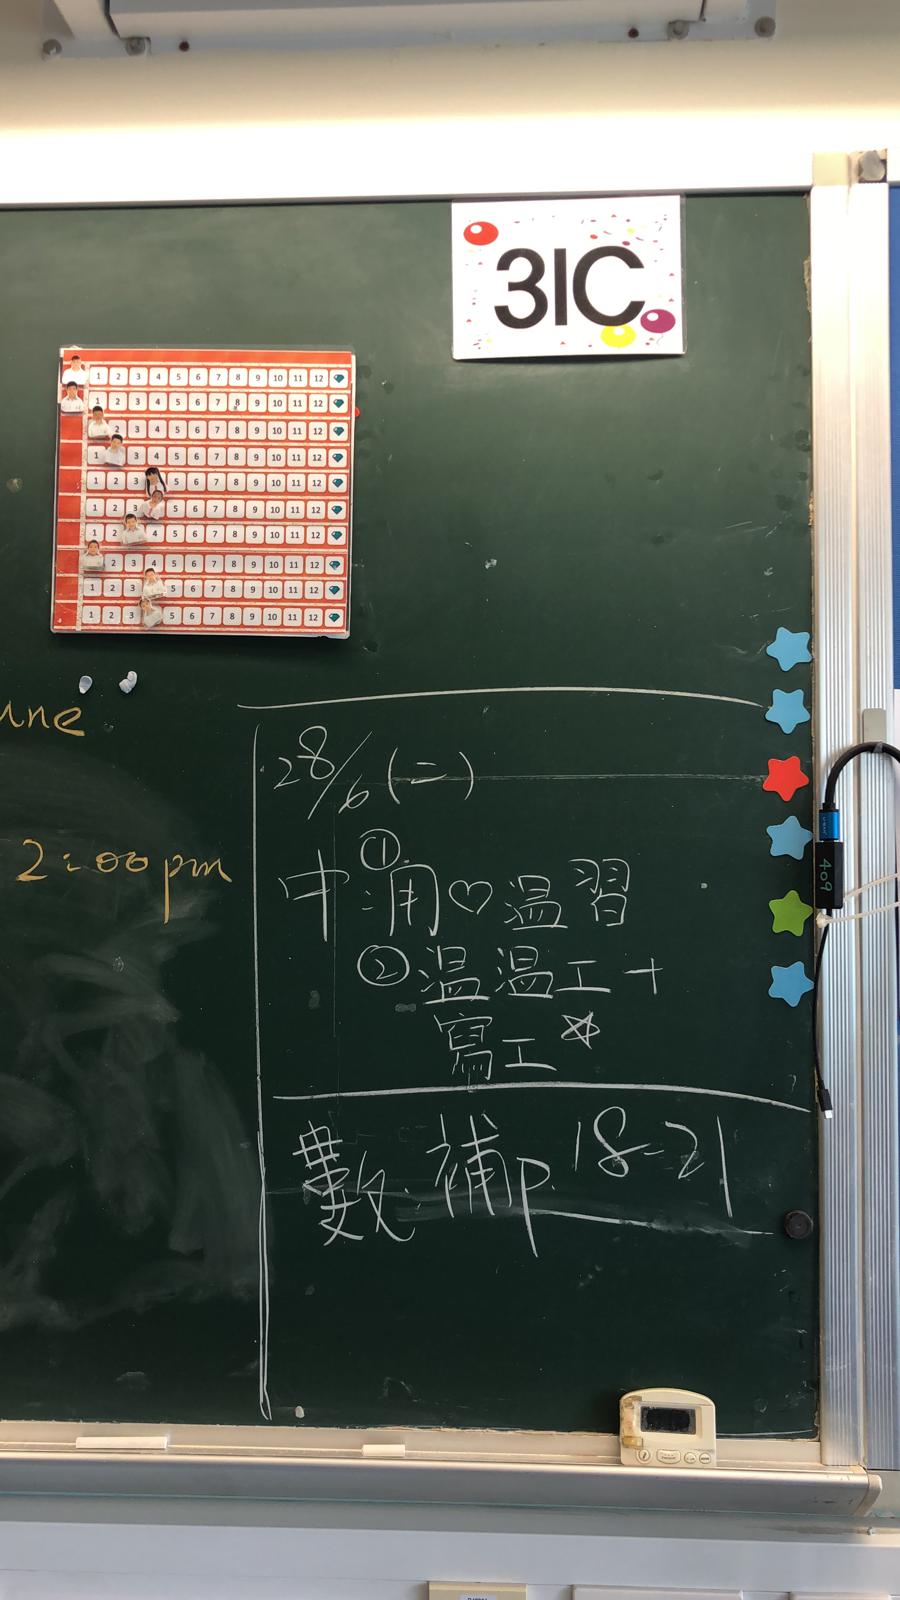 3IC
1 2 3 4 5 6 7 8 9 10 11 12
1 2 3 4 5 6 7 8 9 10 11 12
2 3 4 5 6 7 8 9 10 11 12
1 3 4 5 6 7 8 9 10 11 12
1 2 3 5 6 7 8 9 10 11 12
1 2 3 5 6 7 8 9 10 11 12
1 2 4 5 6 7 8 9 10 11 12
2 3 4 5 6 7 8 9 10 11 12
1 2 3 5 6 7 8 9 10 11 12
1 2 3 5 6 7 8 9 10 11 12
une
2:00 pm
28/6 (二)
中 ① 用♡溫習
② 溫溫工+
寫工☆
數 補p.18-21
409